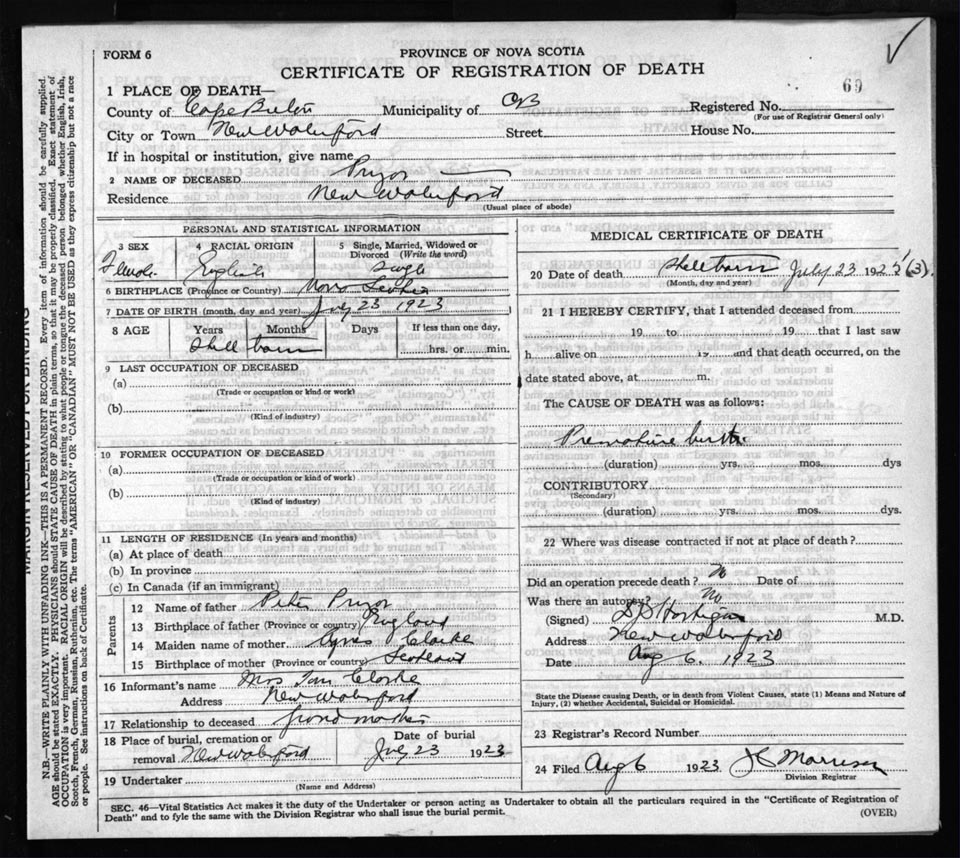 FORM 6
PROVINCE OF NOVA SCOTIA
CERTIFICATE OF REGISTRATION OF DEATH
69
1 PLACE OF DEATH—
County of Cape Breton Municipality of CB Registered No.
(For use of Registrar General only)
City or Town New Waterford Street House No.
If in hospital or institution, give name
2 NAME OF DECEASED Pryor
Residence New Waterford
(Usual place of abode)
PERSONAL AND STATISTICAL INFORMATION
3 SEX 4 RACIAL ORIGIN 5 Single, Married, Widowed or Divorced (Write the word)
English Single
6 BIRTHPLACE (Province or Country) Nova Scotia
7 DATE OF BIRTH (month, day and year) July 23 1923
8 AGE Years Months Days If less than one day,
Still born hrs. or min.
9 LAST OCCUPATION OF DECEASED
(a)
(Trade or occupation or kind or work)
(b)
(Kind of industry)
10 FORMER OCCUPATION OF DECEASED
(a)
(Trade or occupation or kind of work)
(b)
(Kind of industry)
11 LENGTH OF RESIDENCE (In years and months)
(a) At place of death
(b) In province
(c) In Canada (if an immigrant)
Parents
12 Name of father Peter Pryor
13 Birthplace of father (Province or country) England
14 Maiden name of mother Clarke
15 Birthplace of mother (Province or country) Scotland
16 Informant's name Mrs Tom Clarke
Address New Waterford
17 Relationship to deceased grand mother
18 Place of burial, cremation or removal New Waterford
Date of burial July 23 1923
19 Undertaker
(Name and Address)
MEDICAL CERTIFICATE OF DEATH
20 Date of death Still born July 23 1925 (3)
(Month, day and year)
21 I HEREBY CERTIFY, that I attended deceased from
19 to 19 that I last saw
h alive on 19 and that death occurred, on the
date stated above, at m.
The CAUSE OF DEATH was as follows:
Premature birth
(duration) yrs. mos. dys
CONTRIBUTORY
(Secondary)
(duration) yrs. mos. dys.
22 Where was disease contracted if not at place of death?
Did an operation precede death? No Date of
Was there an autopsy? No
(Signed) M.D.
Address New Waterford
Date Aug 6. 1923
State the Disease causing Death, or in death from Violent Causes, state (1) Means and Nature of
Injury, (2) whether Accidental, Suicidal or Homicidal.
23 Registrar's Record Number
24 Filed Aug 6 1923 J C Morrison
Division Registrar
SEC. 46—Vital Statistics Act makes it the duty of the Undertaker or person acting as Undertaker to obtain all the particulars required in the "Certificate of Registration of
Death" and to fyle the same with the Division Registrar who shall issue the burial permit.
(OVER)
MARGIN RESERVED FOR BINDING
N.B.—WRITE PLAINLY WITH UNFADING INK—THIS IS A PERMANENT RECORD. Every item of information should be carefully supplied.
AGE should be stated EXACTLY. PHYSICIANS should STATE CAUSE OF DEATH in plain terms, so that it may be properly classified. Exact statement of
OCCUPATION is very important. RACIAL ORIGIN will be described by stating to what people or tongue the deceased person belonged whether English, Irish,
Scotch, French, German, Russian, Ruthenian, etc. The terms "AMERICAN" or "CANADIAN" MUST NOT BE USED as they express citizenship but not a race
or people. See instructions on back of Certificate.